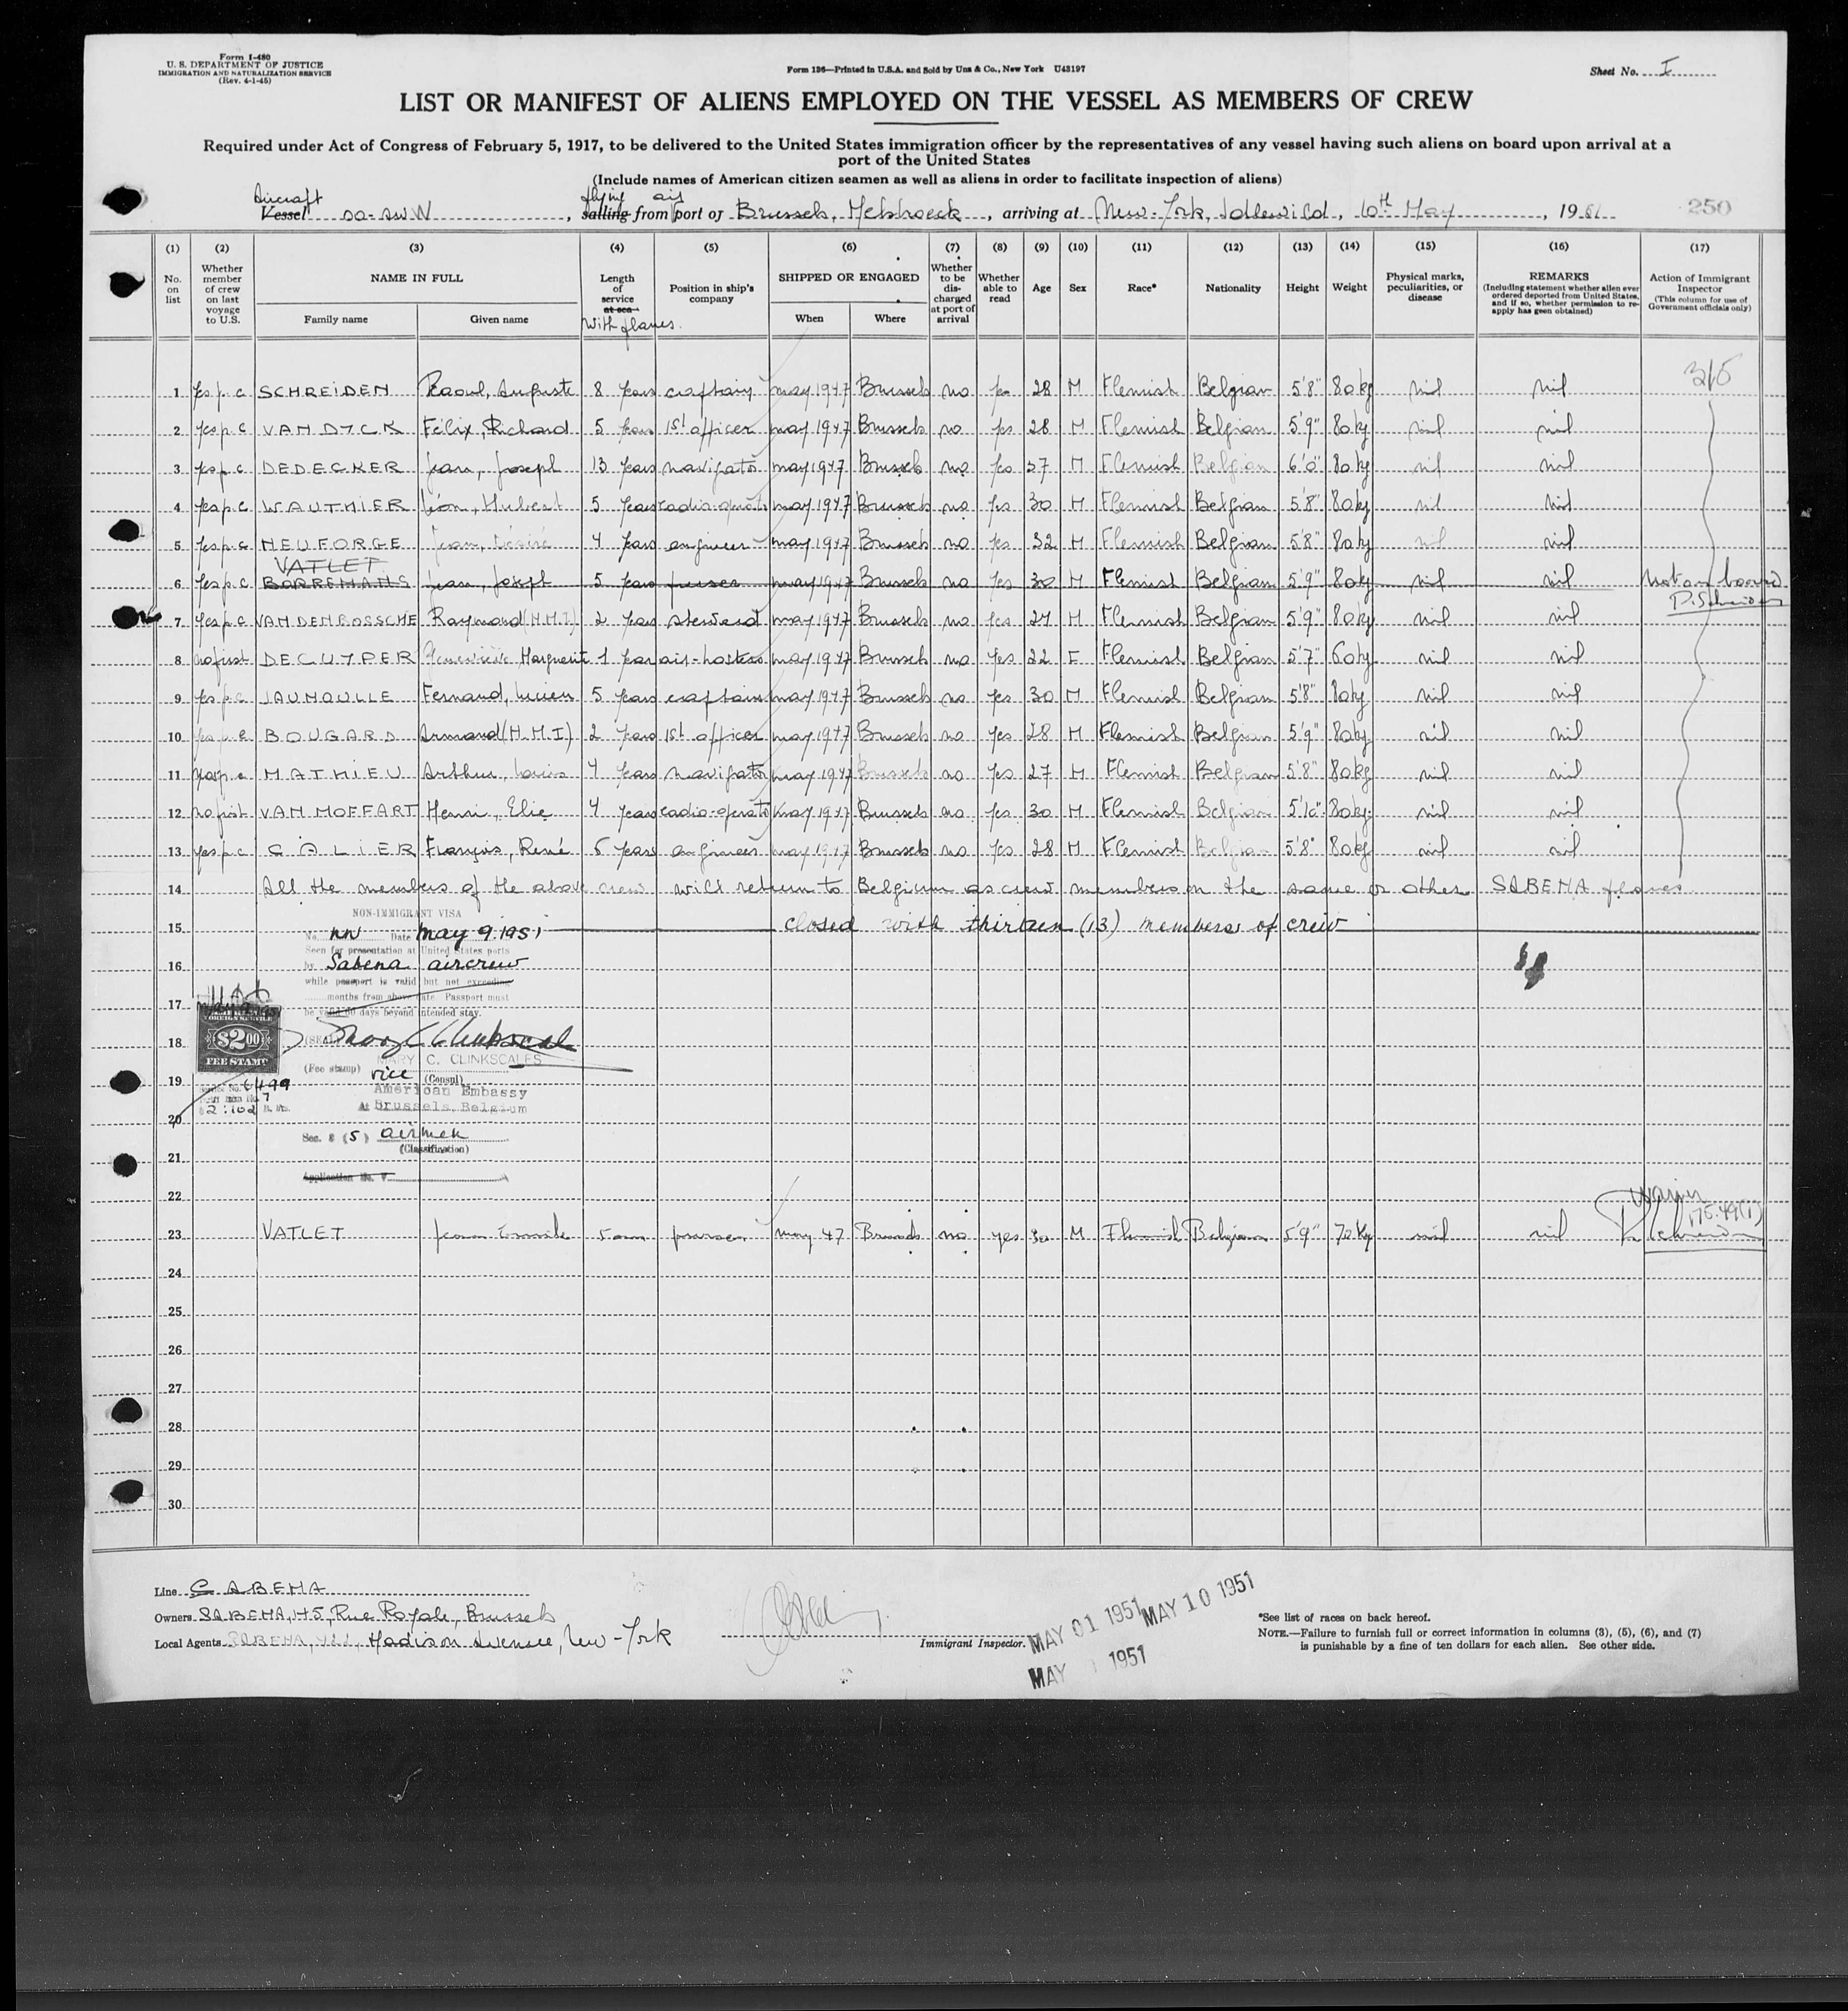 Form I-480
U. S. DEPARTMENT OF JUSTICE
IMMIGRATION AND NATURALIZATION SERVICE
(Rev. 4-1-45)
Form 136—Printed in U.S.A. and Sold by Unz & Co., New York U43197
Sheet No. I
LIST OR MANIFEST OF ALIENS EMPLOYED ON THE VESSEL AS MEMBERS OF CREW
Required under Act of Congress of February 5, 1917, to be delivered to the United States immigration officer by the representatives of any vessel having such aliens on board upon arrival at a
port of the United States
(Include names of American citizen seamen as well as aliens in order to facilitate inspection of aliens)
Aircraft flying air
Vessel oo-sww, sailing from port of Brussels, Melsbroeck, arriving at New-York, Idlewild, 10th May, 1951 250
(1) (2) (3) (4) (5) (6) (7) (8) (9) (10) (11) (12) (13) (14) (15) (16) (17)
No. on list
Whether member of crew on last voyage to U.S.
NAME IN FULL
Family name
Given name
Length of service at sea
With planes.
Position in ship's company
SHIPPED OR ENGAGED
When
Where
Whether to be discharged at port of arrival
Whether able to read
Age
Sex
Race*
Nationality
Height
Weight
Physical marks, peculiarities, or disease
REMARKS
(Including statement whether alien ever ordered deported from United States, and if so, whether permission to re-apply has geen obtained)
Action of Immigrant Inspector
(This column for use of Government officials only)
315
1 yes p.c SCHREIDEN Raoul, Auguste 8 years captain may 1947 Brussels no yes 28 M Flemish Belgian 5'8" 80kg nil nil
2 yes p.c VAN DYCK Félix, Richard 5 years 1st officer may 1947 Brussels no yes 28 M Flemish Belgian 5'9" 80kg nil nil
3 yes p.c DEDECKER Jean, Joseph 13 years navigator may 1947 Brussels no yes 37 M Flemish Belgian 6'0" 80kg nil nil
4 yes p.c WAUTHIER Léon, Hubert 5 years radio-operato may 1947 Brussels no yes 30 M Flemish Belgian 5'8" 80kg nil nil
5 yes p.c NEUFORGE Jean, Désiré 4 years engineer may 1947 Brussels no yes 32 M Flemish Belgian 5'8" 80kg nil nil
VATLET
6 yes p.c BORREMANS Jean, Joseph 5 years purser may 1947 Brussels no yes 30 M Flemish Belgian 5'9" 80kg nil nil Not on board
7 yes p.c VAN DEN BOSSCHE Raymond (N.M.I) 2 years steward may 1947 Brussels no yes 27 M Flemish Belgian 5'9" 80kg nil nil
8 no first DECUYPER Geneviève, Marguerite 1 year air-hostess may 1947 Brussels no yes 22 F Flemish Belgian 5'7" 60kg nil nil
9 yes p.c JAUMOULLE Fernand, Lucien 5 years captain may 1947 Brussels no yes 30 M Flemish Belgian 5'8" 80kg nil nil
10 yes p.c BOUGARD Armand (N.M.I) 2 years 1st officer may 1947 Brussels no yes 28 M Flemish Belgian 5'9" 80kg nil nil
11 yes p.c MATHIEU Arthur, Louis 4 years navigator may 1947 Brussels no yes 27 M Flemish Belgian 5'8" 80kg nil nil
12 no first VAN MOFFART Henri, Elie 4 years radio-operato may 1947 Brussels no yes 30 M Flemish Belgian 5'10" 80kg. nil nil
13 yes p.c CALIER François, René 5 years engineer may 1947 Brussels no yes 28 M Flemish Belgian 5'8" 80kg nil nil
14 All the members of the above crew will return to Belgium as crew members on the same or other SABENA planes
NON-IMMIGRANT VISA
15 closed with thirteen (13) members of crew
No. nn Date may 9 1951
Seen for presentation at United States ports
16 by Sabena aircrew
while passport is valid but not exceeding
months from above date Passport must
17 be valid 60 days beyond intended stay.
FOREIGN SERVICE
$2.00
FEE STAMP
18 (SEAL) Mary C Clinkscales
MARY C. CLINKSCALES
(Fee stamp) vice (Consul)
19 Service No. 6499
American Embassy
At Brussels, Belgium
Tariff Item No. 7
20
Sec. 3 (5) airmen
(Classification)
21
Application No. V
22
23 VATLET Jean Emile 5 ans purser may 47 Brussels no yes 30 M Flemish Belgian 5'9" 70 Kg nil nil
175.49(1)
24
25
26
27
28
29
30
Line SABENA
Owners SABENA, 145, Rue Royale, Brussels
Local Agents SABENA, Madison Avenue, New-York
Immigrant Inspector.
MAY 01 1951 MAY 10 1951
MAY 1951
*See list of races on back hereof.
NOTE.—Failure to furnish full or correct information in columns (3), (5), (6), and (7)
is punishable by a fine of ten dollars for each alien. See other side.